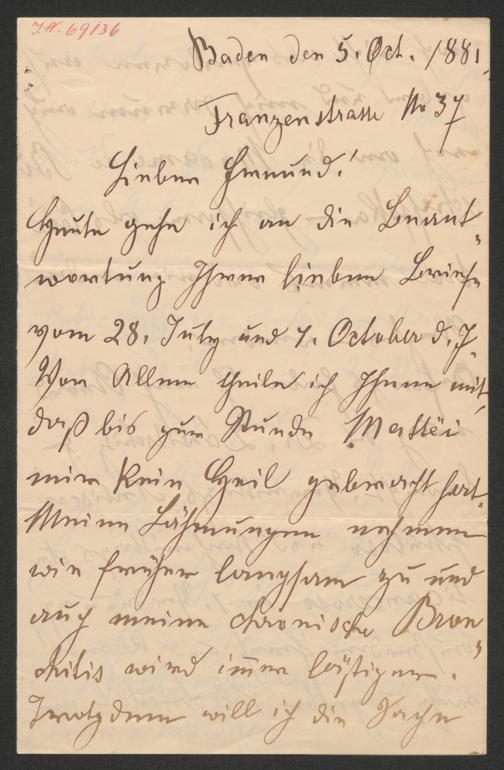 J.N. 69136
Baden den 5. Oct. 1881,
Franzensstrasse No 37
Lieber Freund!
Heute gehe ich an die Beant-
wortung Ihrer lieben Briefe
vom 28. July und 1. October d. J.
Vor Allem theile ich Ihnen mit,
daß bis zur Stunde Mattëi
mir kein Heil gebracht hat.
Meine Lähmungen nehmen
wie früher langsam zu und
auch meine chronische Bron-
chitis wird im̄er lästiger.
Trotzdem will ich die Sache